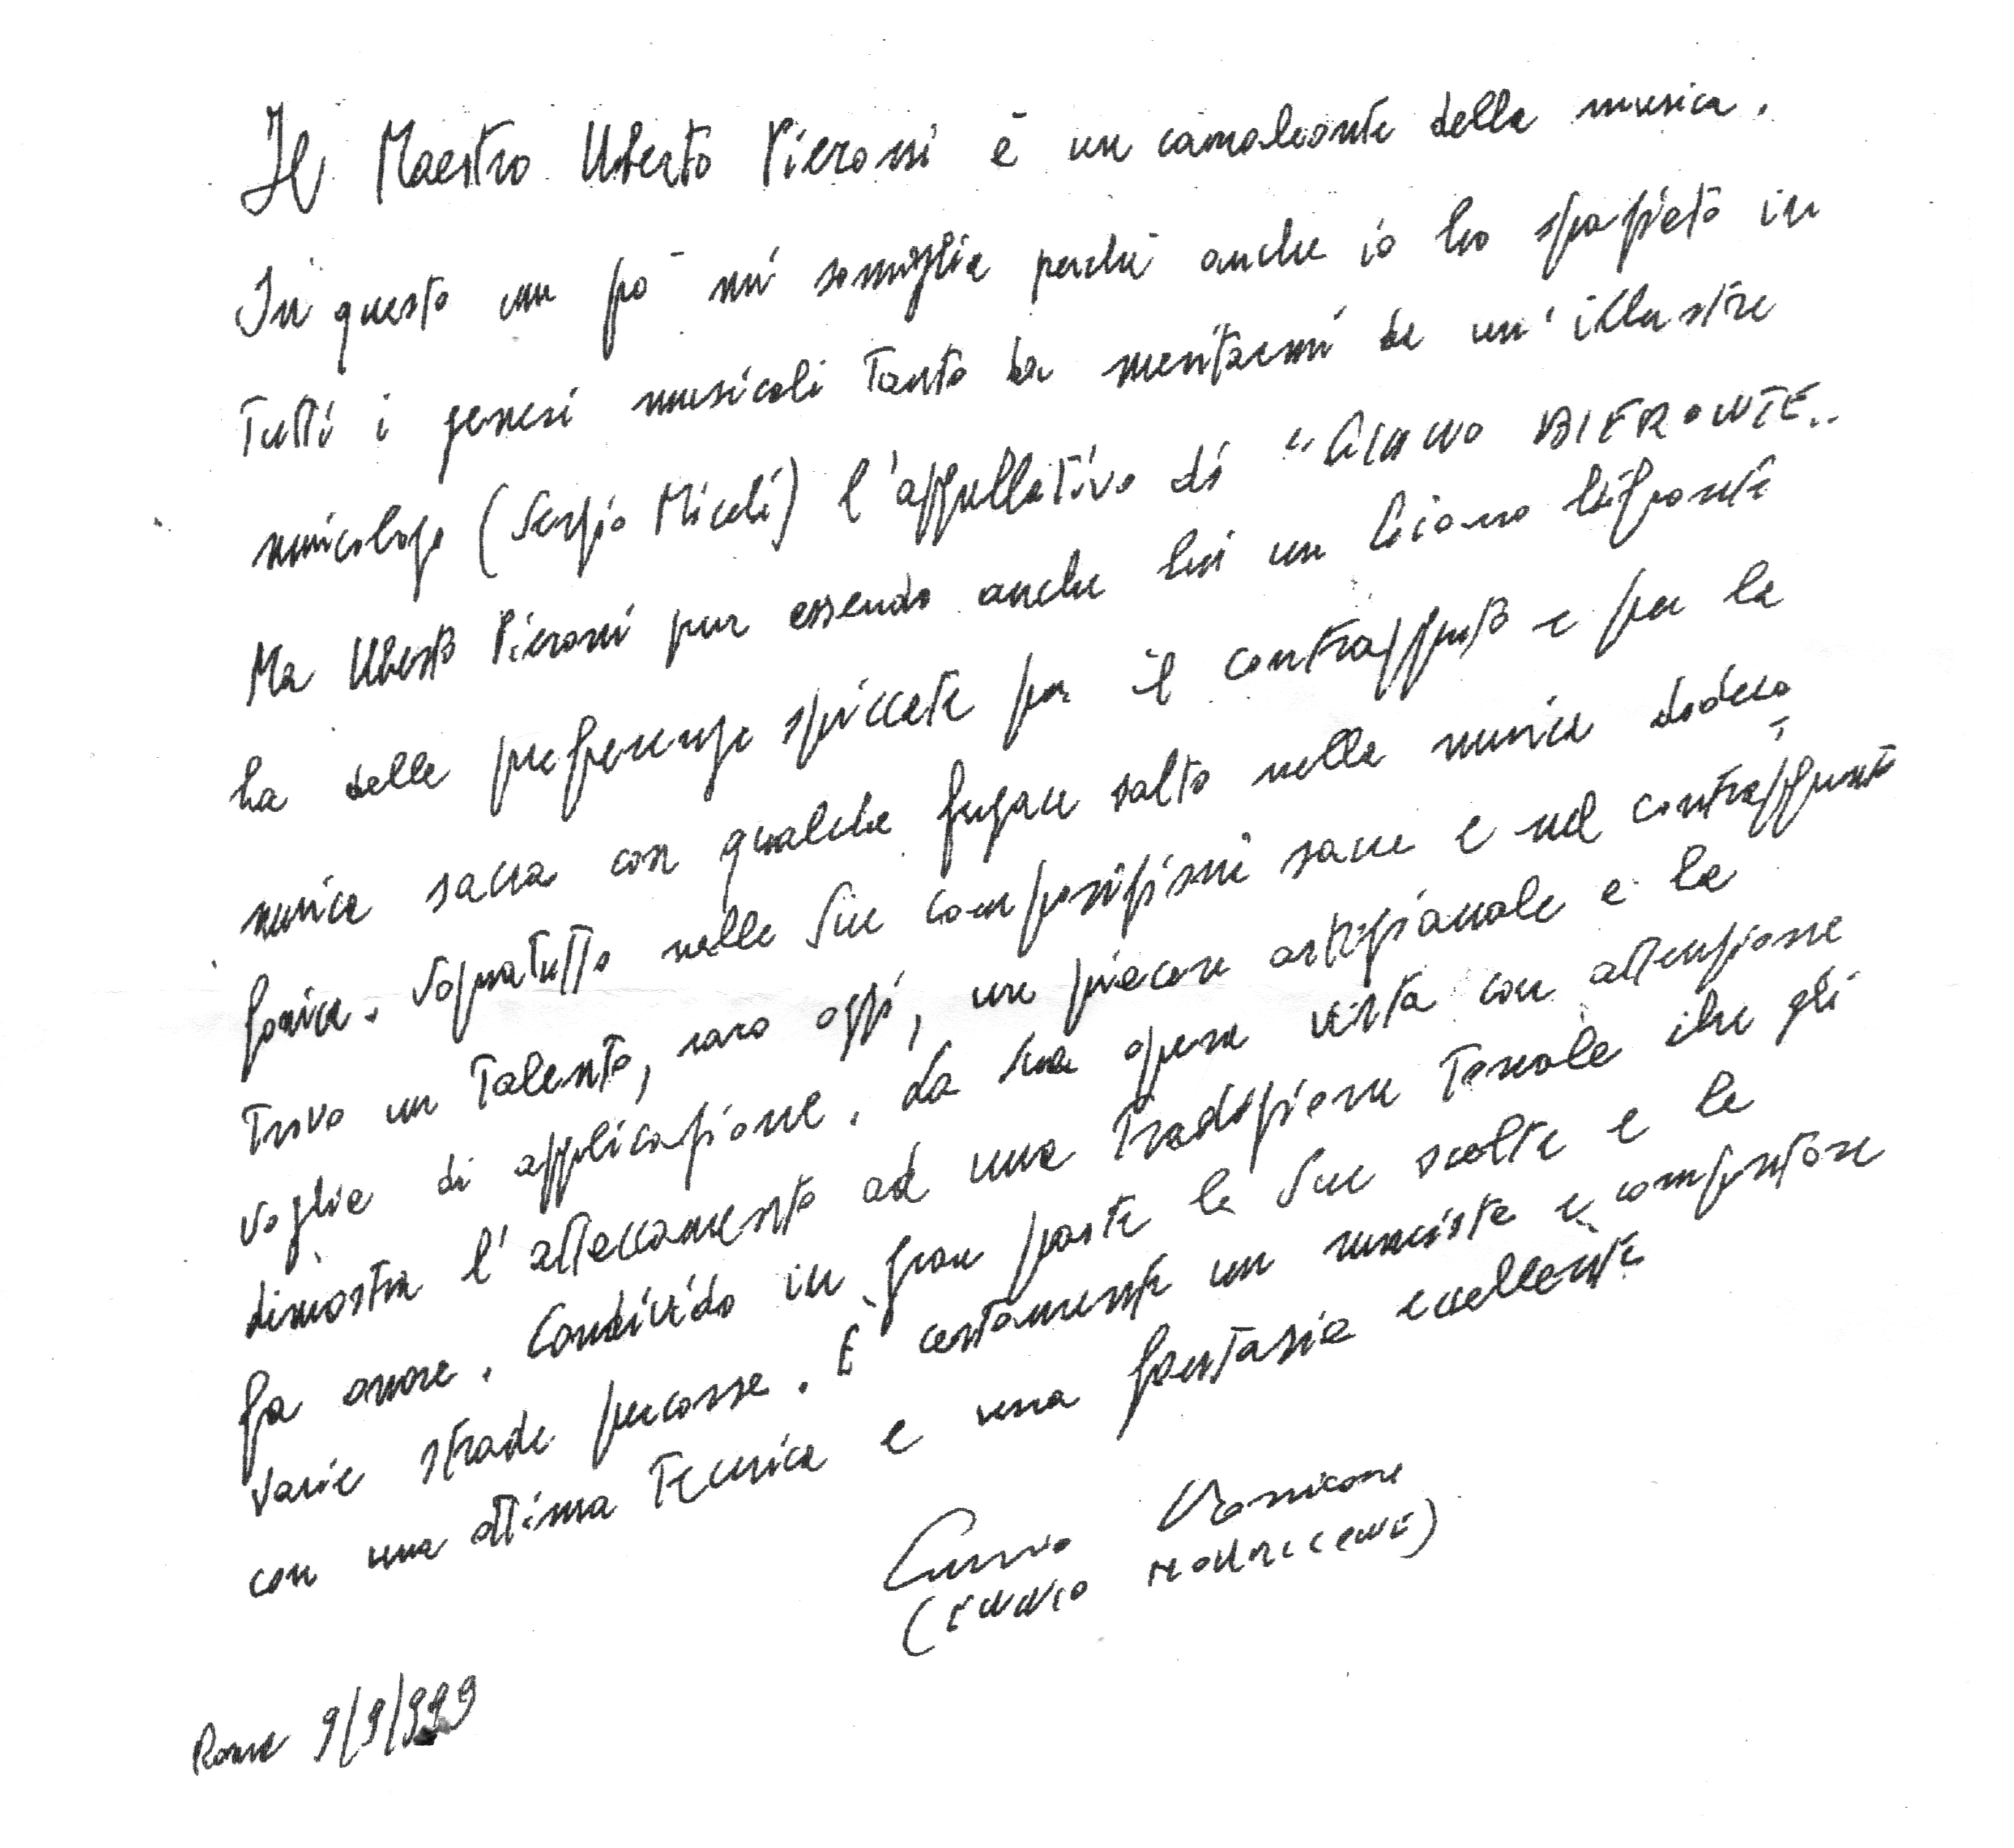 Il Maestro Uberto Pieroni è un camaleonte della musica.
In questo un pò mi somiglia perchè anche io ho spaziato in
tutti i generi musicali tanto da meritarmi da un'illustre
musicologo (Sergio Miceli) l'appellativo di "GIANO BIFRONTE"
Ma Uberto Pieroni pur essendo anche lui un Giano bifronte
ha delle preferenze spiccate per il contrappunto e per la
musica sacra con qualche fugace salto nella musica dodeca
fonica. Sopratutto nelle Sue composizioni sacre e nel contrappunto
trovo un talento, raro oggi, un piacere artigianale e la
voglia di applicazione. La sua opera vista con attenzione
dimostra l'attaccamento ad una tradizione tonale che gli
fa onore. Condivido in gran parte le Sue scelte e le
varie strade percorse. È certamente un musicista e compositore
con una ottima tecnica e una fantasia eccellente
Ennio Morricone
(ENNIO MORRICONE)
Roma 9/9/999